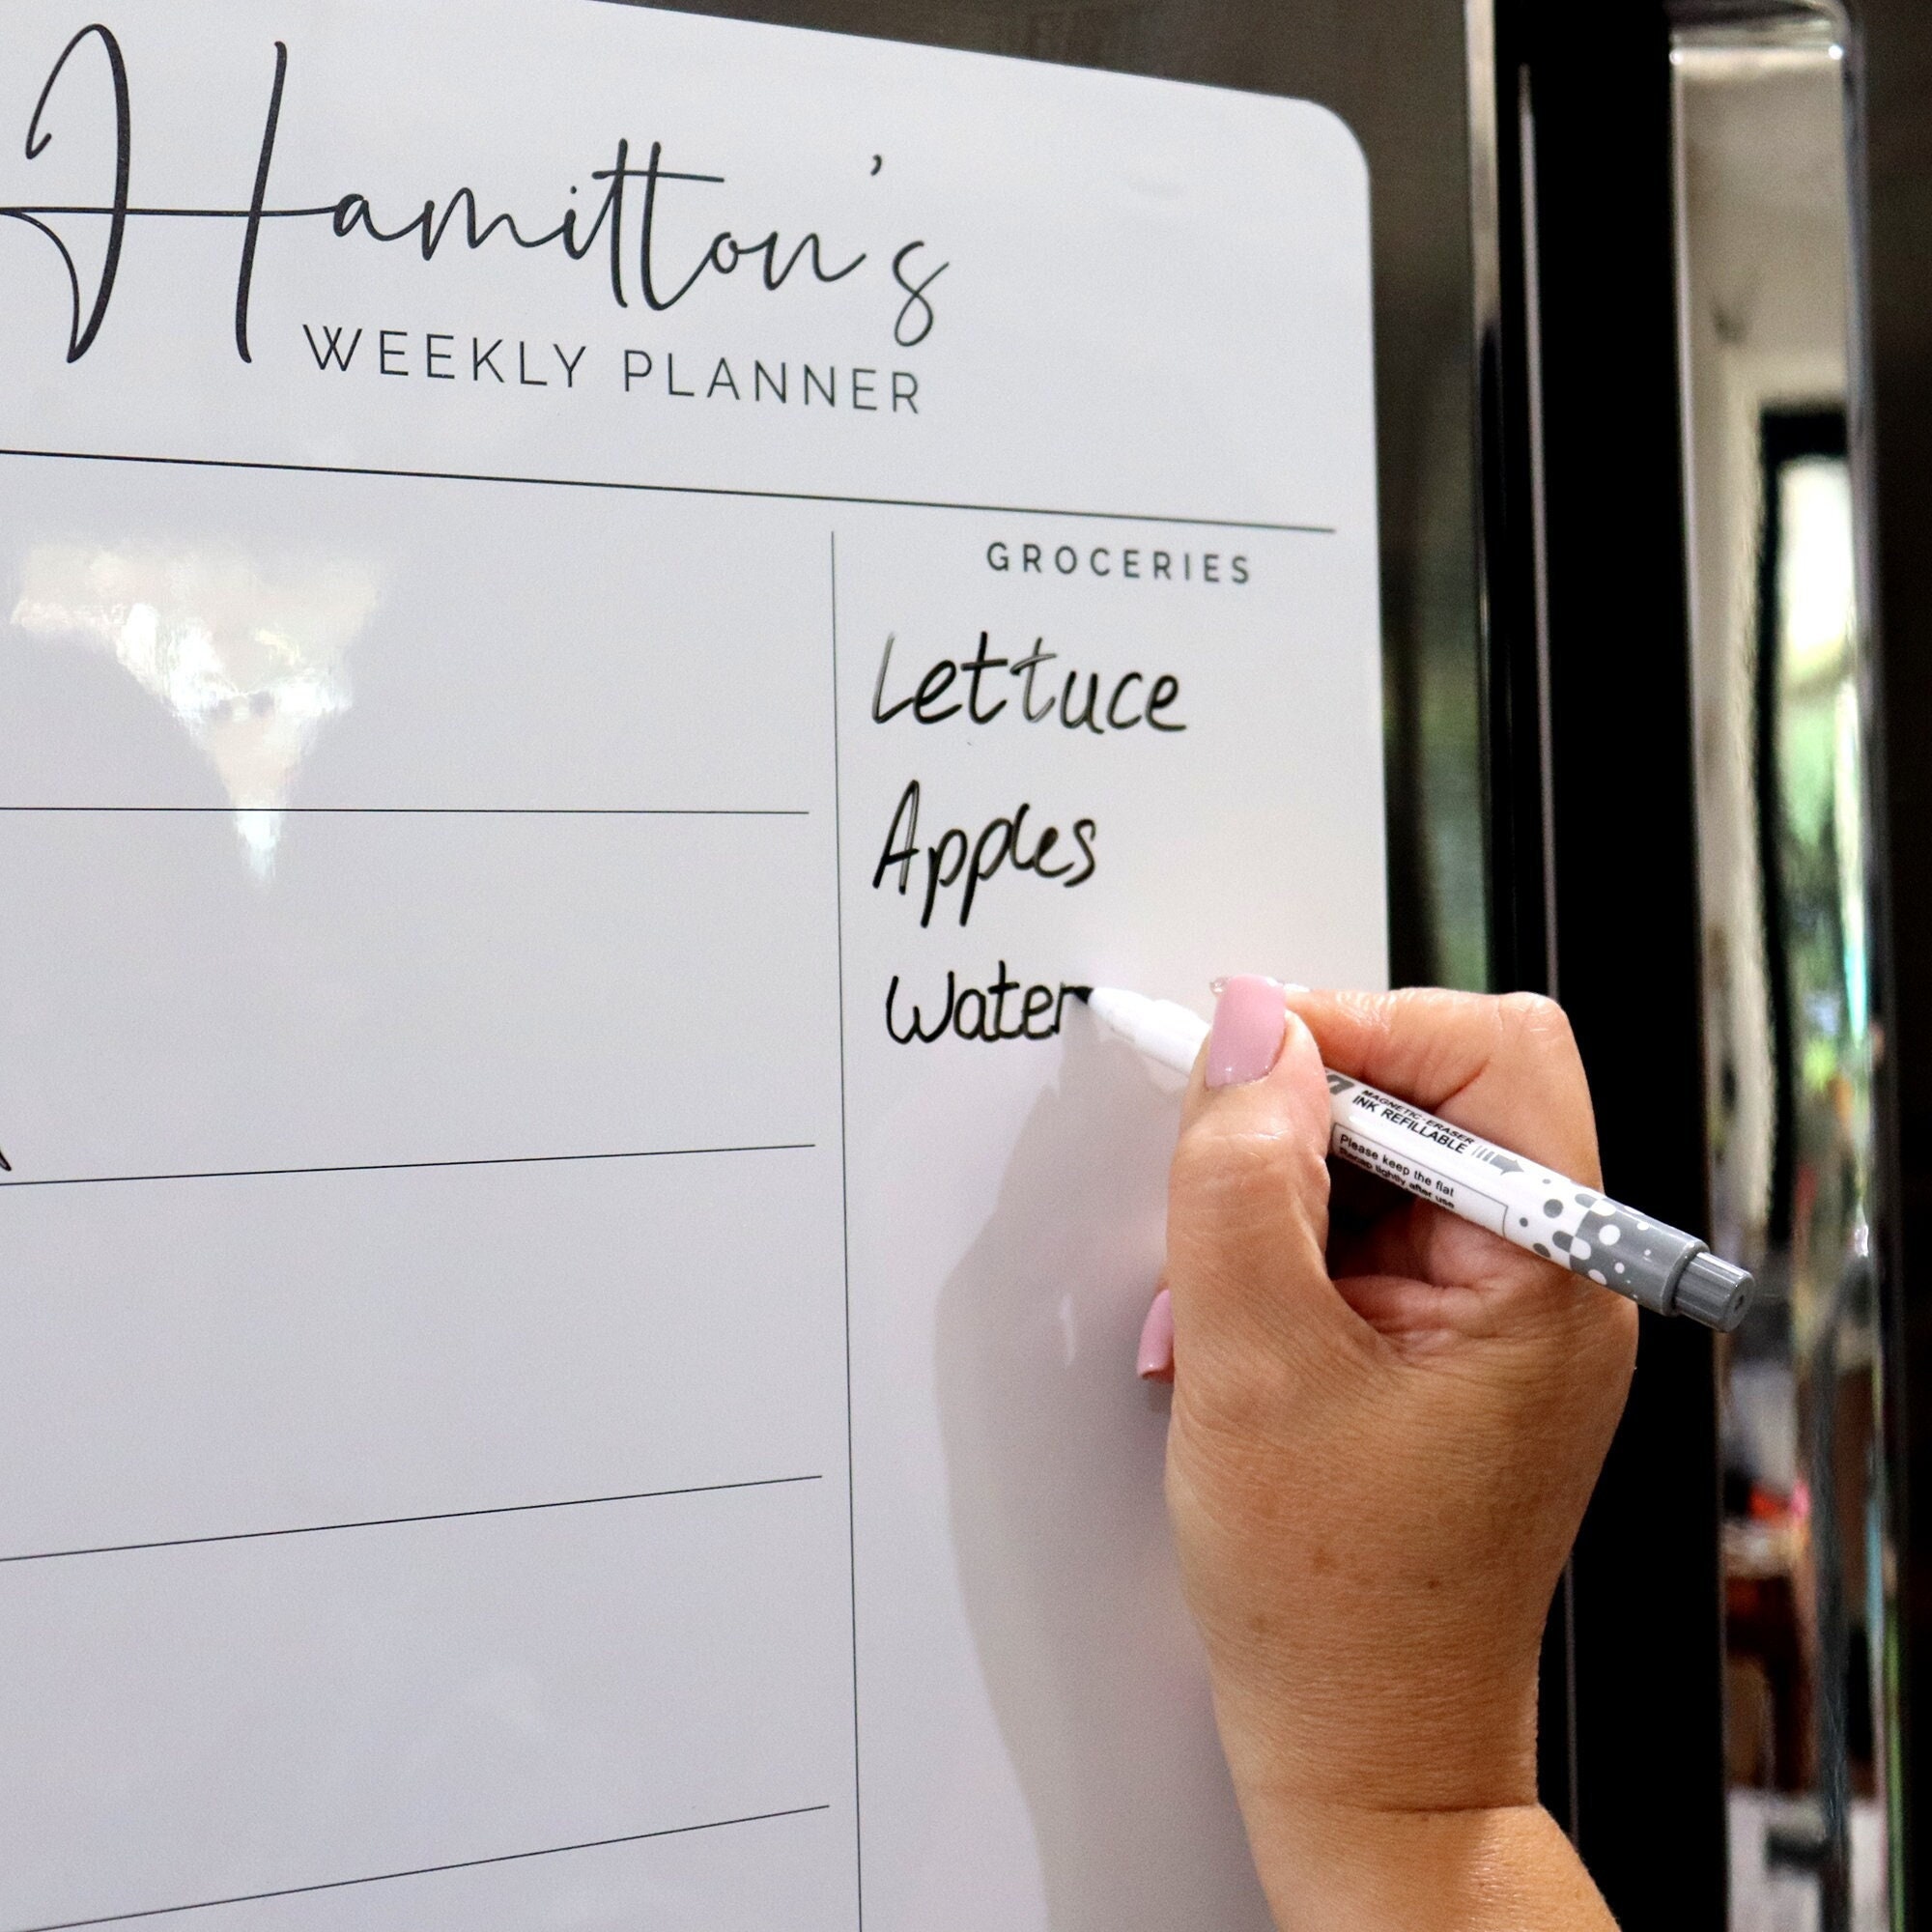 Hamitton's
WEEKLY PLANNER
GROCERIES
Lettuce
Apples
Water
MAGNETIC-ERASER
INK REFILLABLE
Please keep the flat
Recap tightly after use